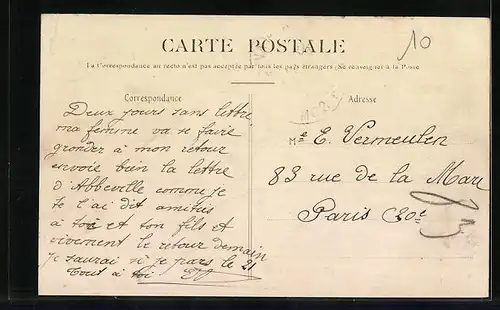 10
CARTE POSTALE
La Correspondance au recto n'est pas acceptée par tous les pays étrangers (Se renseigner à la Poste
Correspondance
Deux jours sans lettre
ma femme va se faire
gronder à mon retour
envoie bien la lettre
d'Abbeville comme je
te l'ai dit amitiés
à toi et ton fils et
vivement le retour demain
je saurai si je pars le 21
Tout à toi
Adresse
Me E. Vermeulen
83 rue de la Mare
Paris 20e